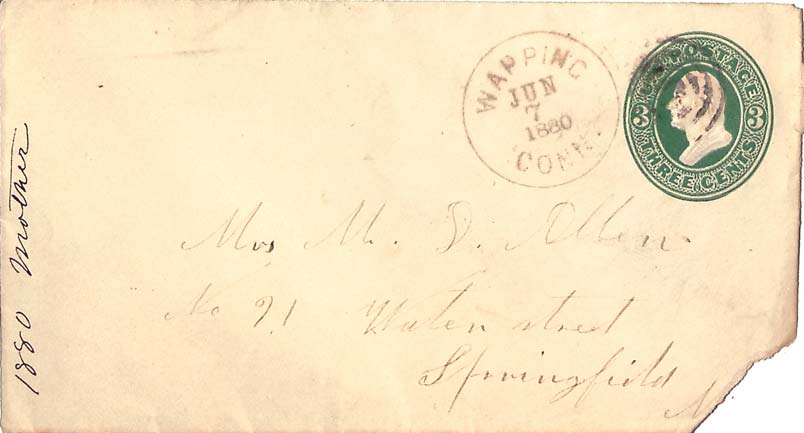 WAPPING
JUN
7
1880
CONN.
U.S. POSTAGE
3 3
THREE CENTS
Mrs M. J. Allen
No 91 Water street
Springfield
M
1880 Mother